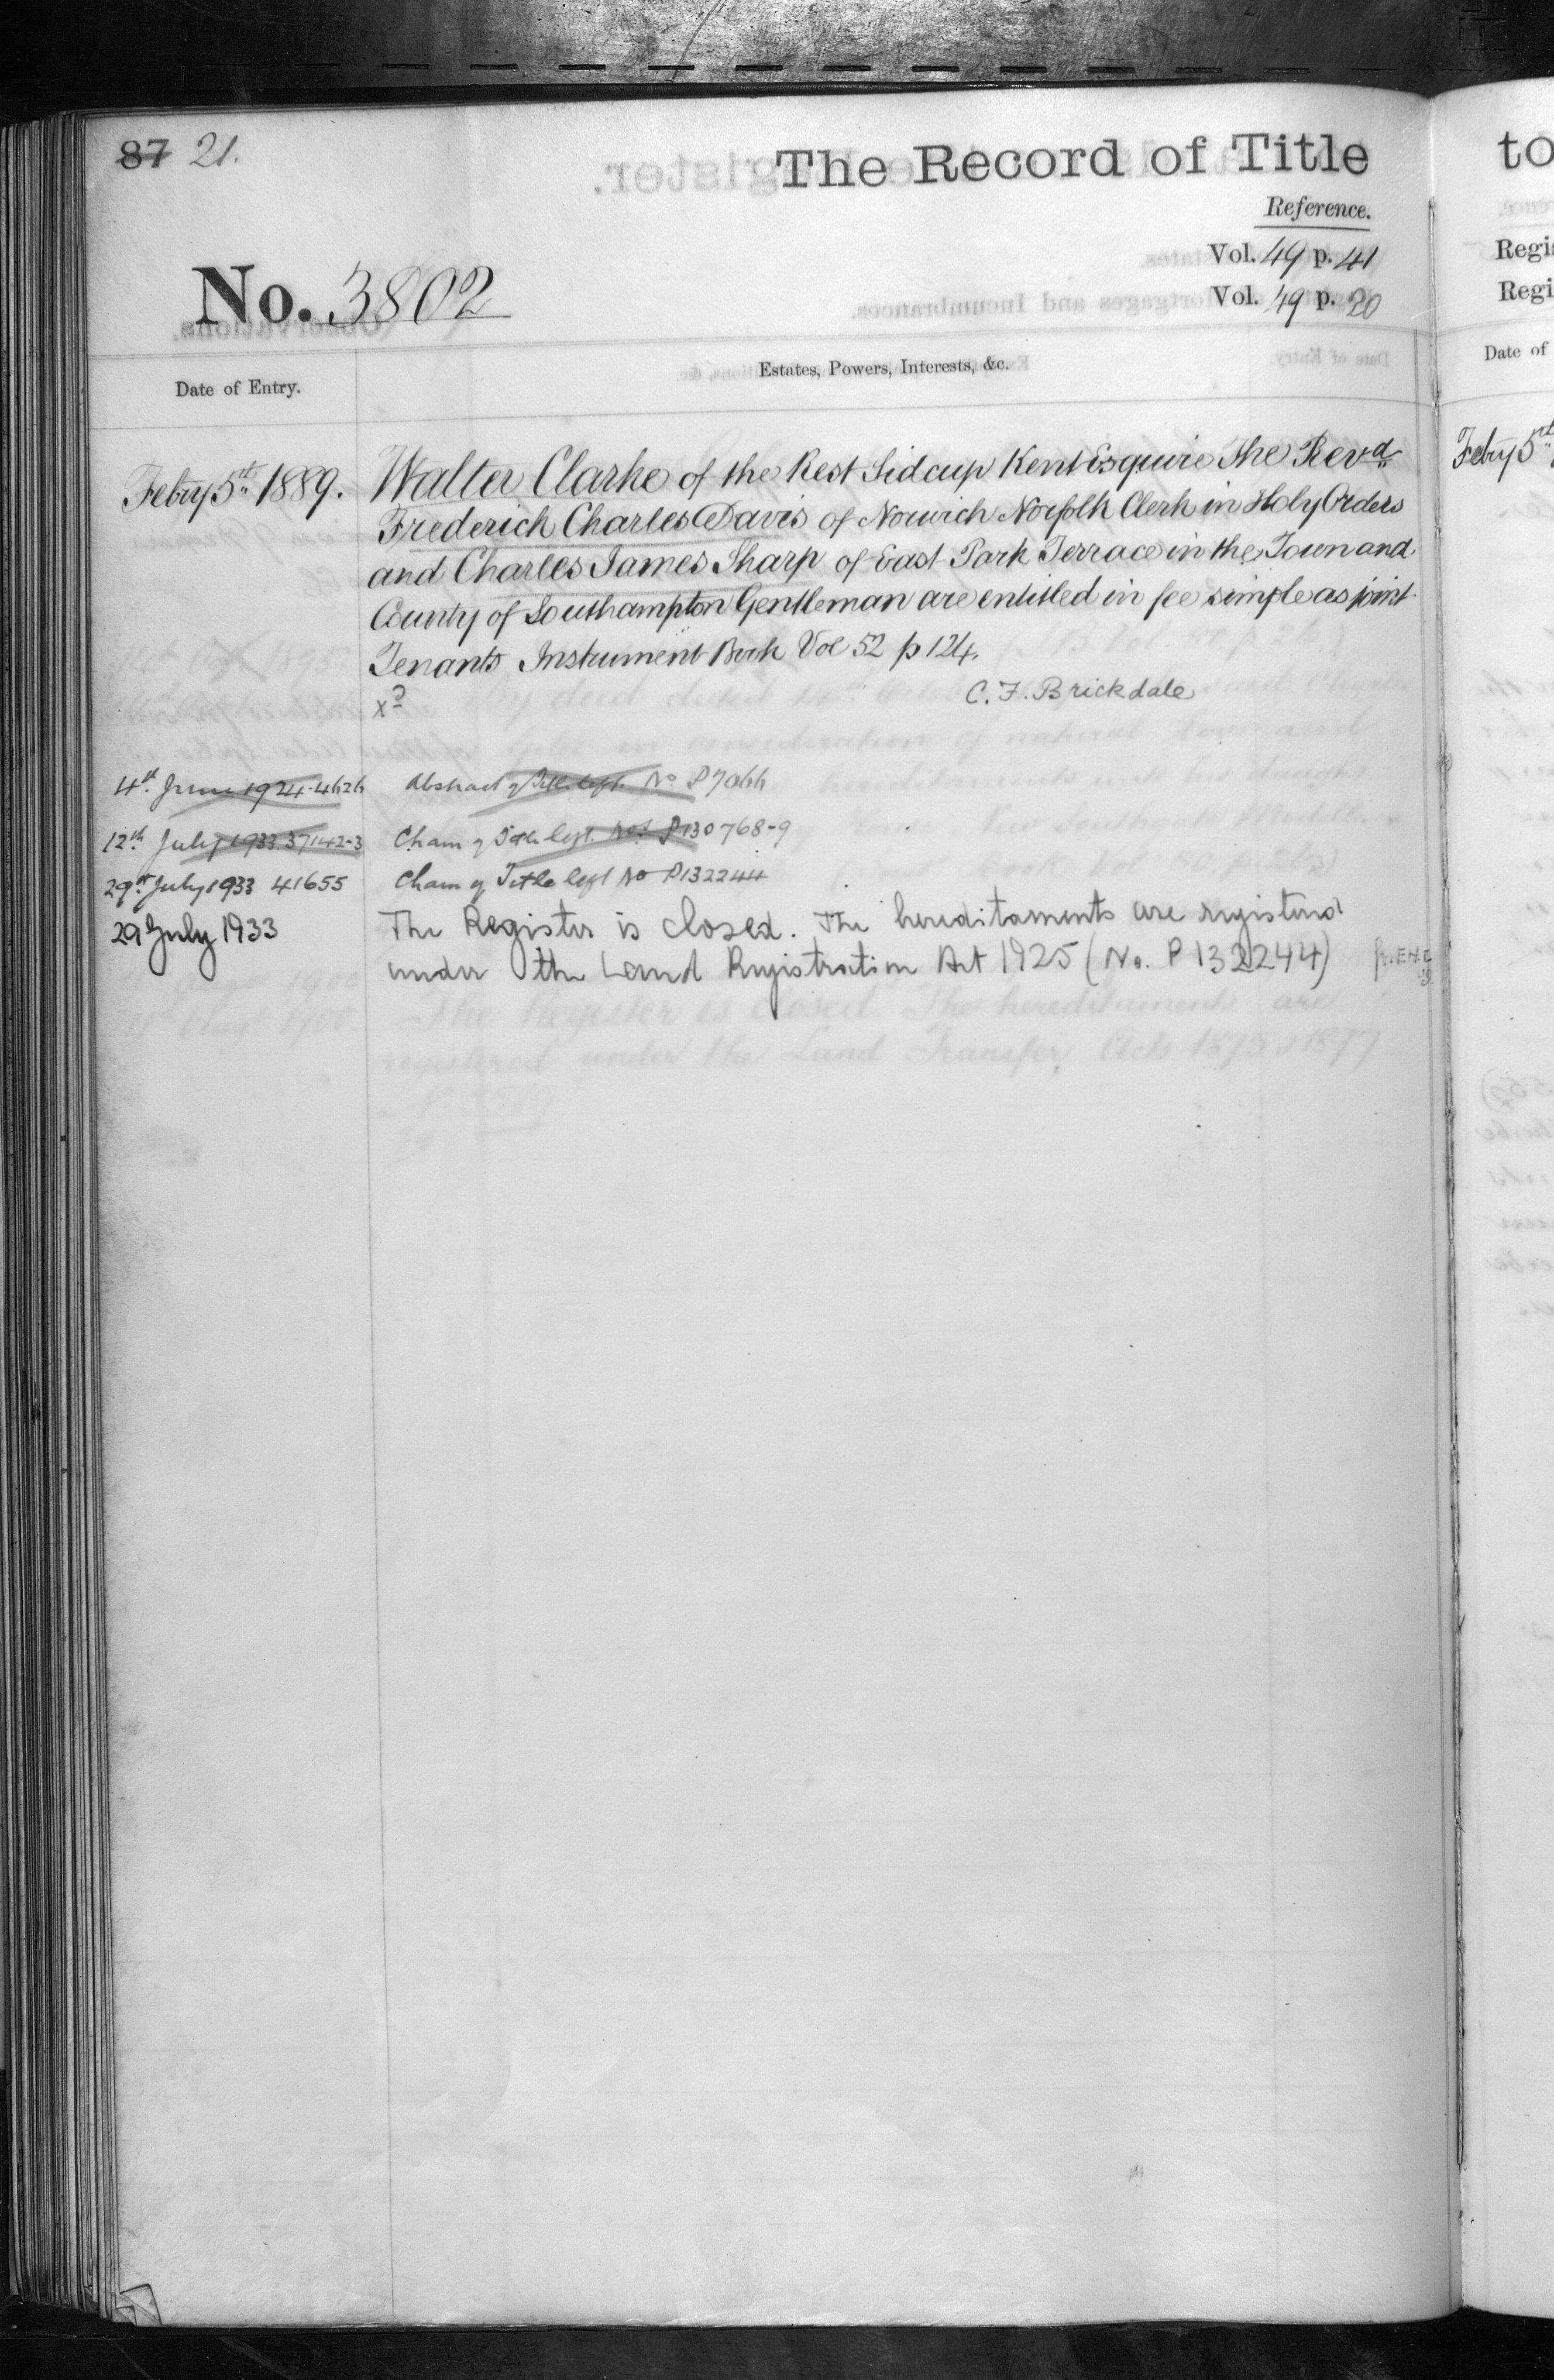 87 21.
The Record of Title
Reference.
Vol. 49 p. 41
No. 3802
Vol. 49 p. 20
Date of Entry.
Estates, Powers, Interests, &c.
Feby 5th 1889. Walter Clarke of the Rest Sidcup Kent Esquire The Revd
Frederick Charles Davis of Norwich Norfolk Clerk in Holy Orders
and Charles James Sharp of East Park Terrace in the Town and
County of Southampton Gentleman are entitled in fee simple as joint
Tenants Instrument Book Vol 52 p 124.
xd
C. F. Brickdale
4th June 1924 Abstract of Title left No P7044
12th July 1933. 37142-3 Chain of Title left. Nos P130768-9
29th July 1933 41655 Chain of Title left No P132244
29 July 1933 The Register is closed. The hereditaments are registered
under the Land Registration Act 1925 (No. P 132244)
The Register is closed. The hereditaments are
registered under the Land Transfer Acts 1875 & 1897
to
Regi
Regi
Date of
Feby 5th